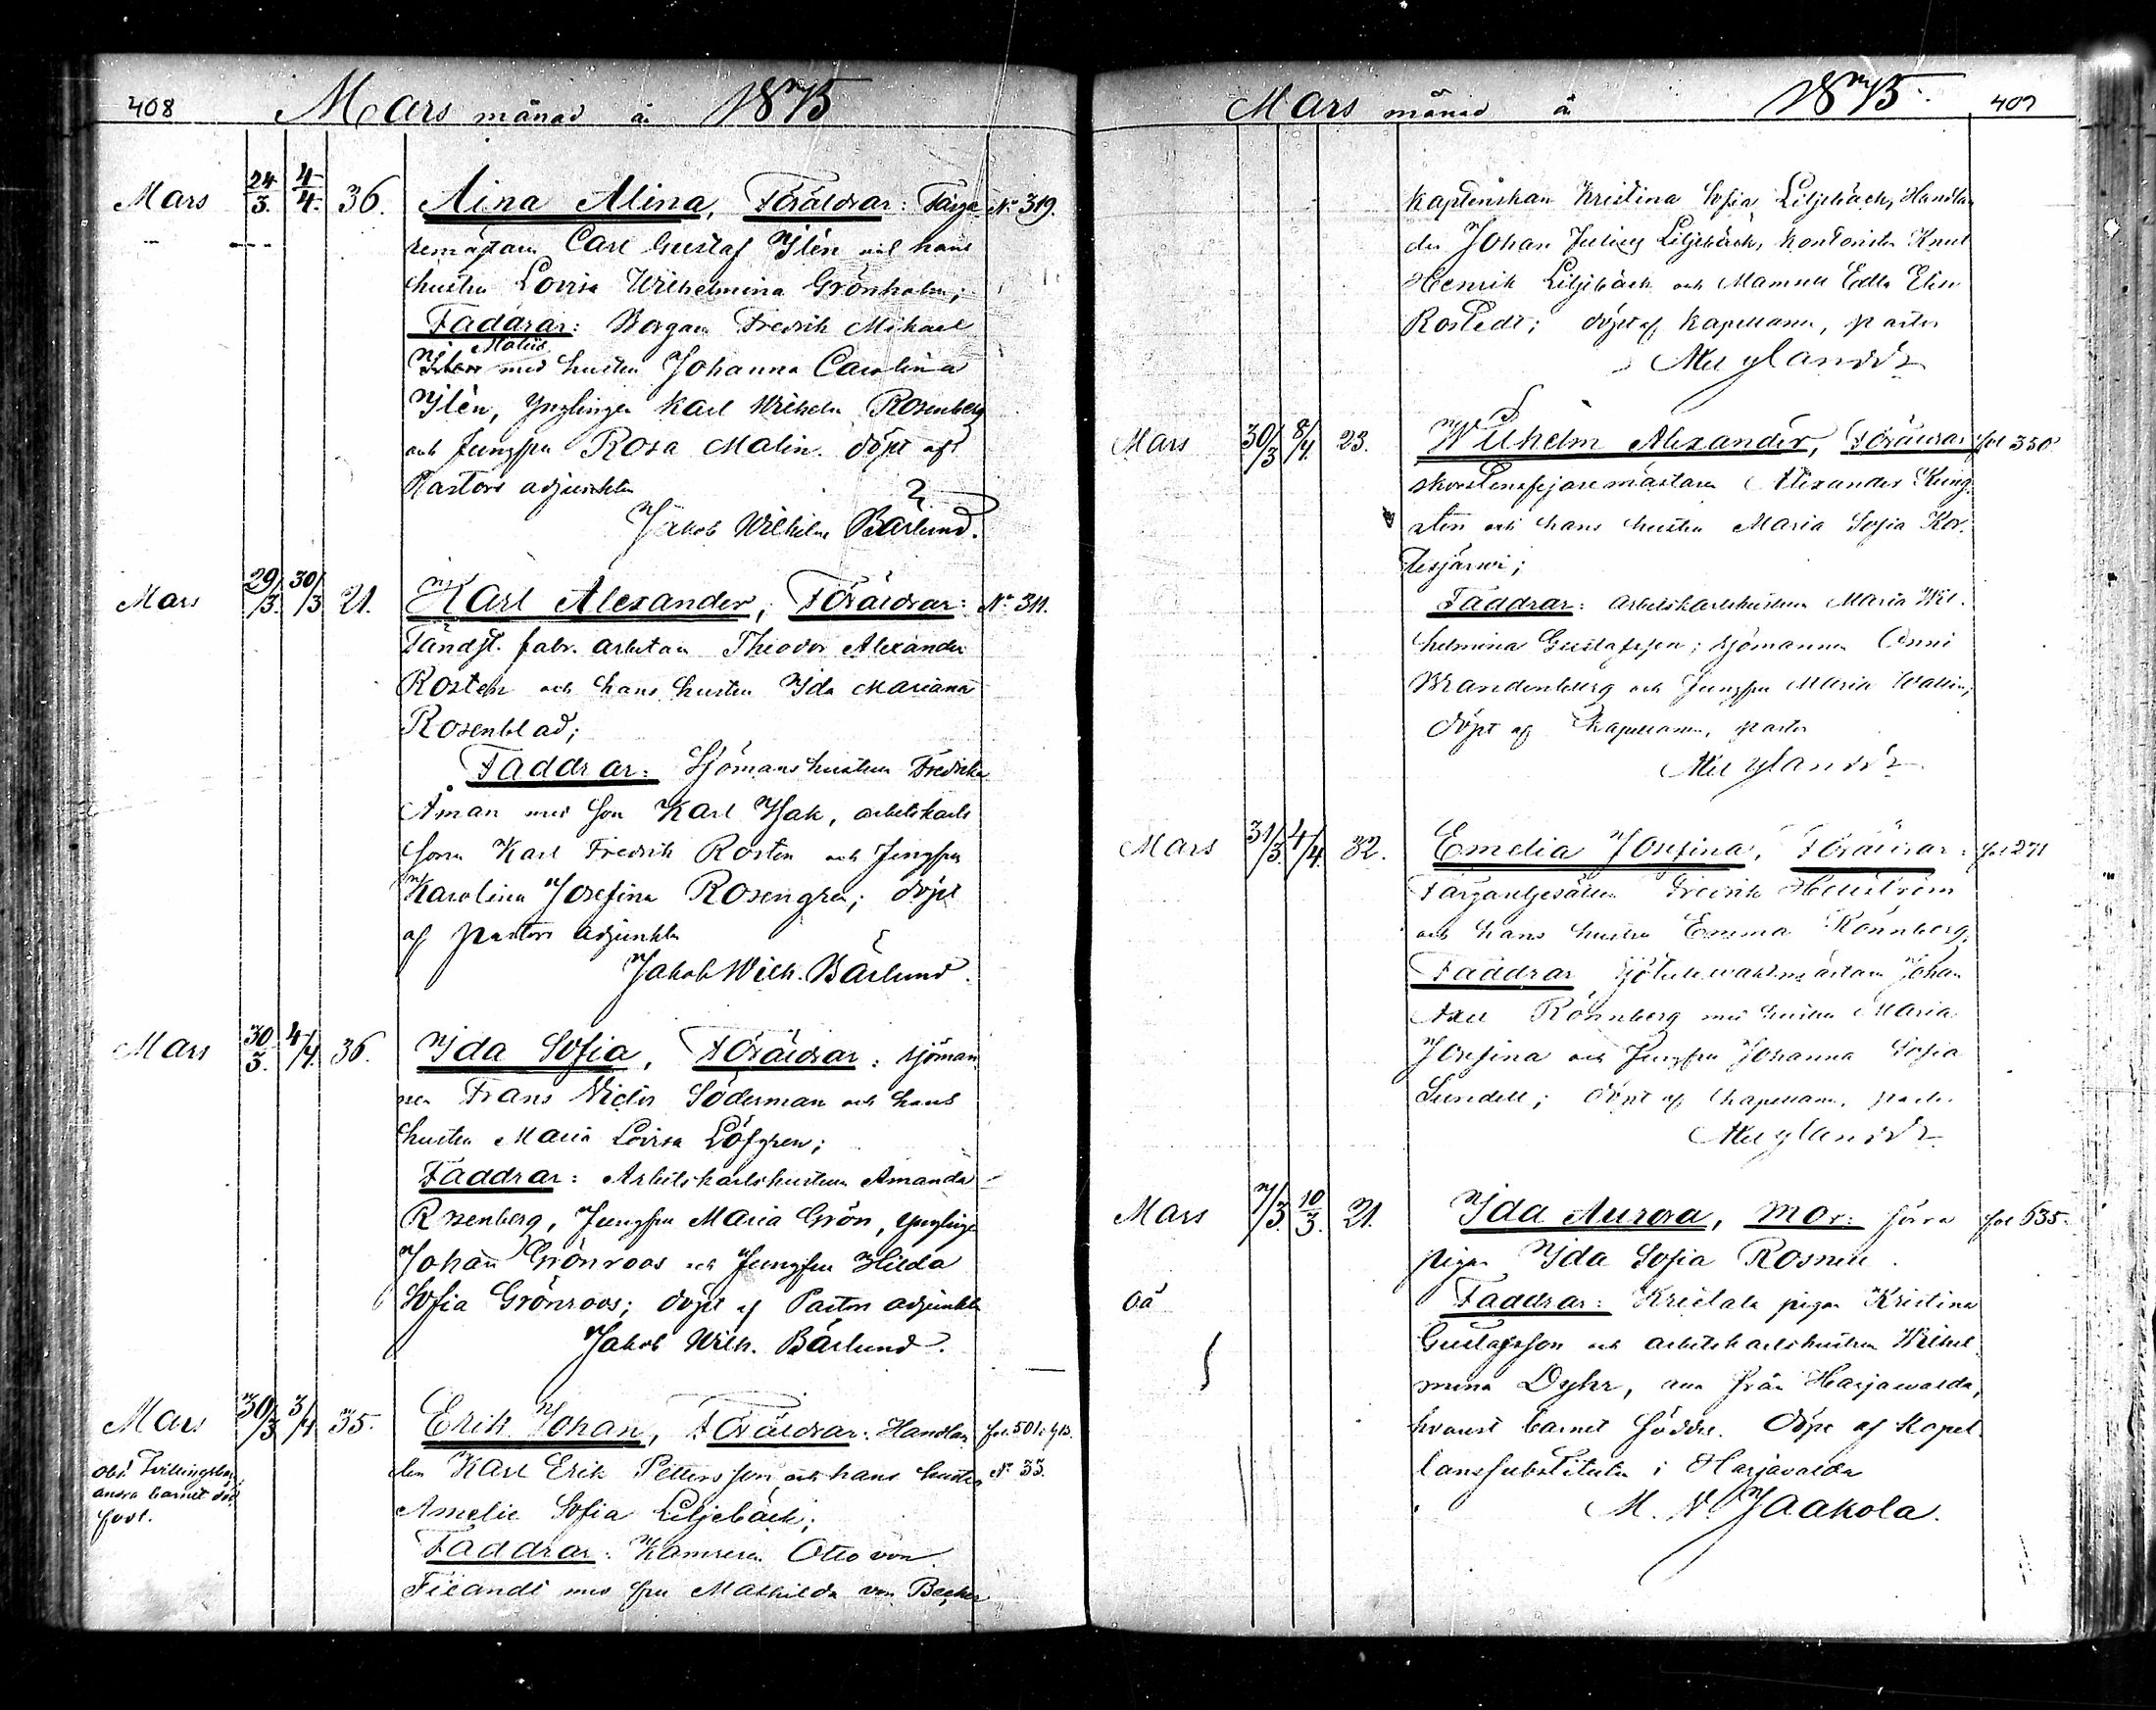 408 Mars månad år 1875
Mars 24/3. 4/4. 36. Aina Alina, Föräldrar: Färga N:o 319.
remästaren Carl Gustaf Ilén och hans
hustru Lovisa Wilhelmina Grönholm;
Faddrar: Borgaren Fredrik Mikael
med hustru Johanna Carolina
Ilén, Ynglingen Karl Wilhelm Rosenberg
och Jungfru Rosa Malin. döpt af
Pastors adjunkten
Jakob Wilhelm Bärlund.
Mars 29/3. 30/3 21. Karl Alexander, Föräldrar: N:o 311.
Tändst. fabr. arbetaren Theodor Alexander
Rosten och hans hustru Ida Mariana
Rosenblad;
Faddrar: Sjömanshustrun Fredrika
Åman med son Karl Isak, arbetskarls
sonen Karl Fredrik Rosten och Jungfru
Karolina Josefina Rosengren; döpt
af pastors adjunkten
Jakob Wilh. Bärlund.
Mars 30/3. 4/4. 36. Ida Sofia, Föräldrar: sjöman
nen Frans Victor Söderman och hans
hustru Maria Lovisa Löfgren;
Faddrar: Arbetskarlshustrun Amanda
Rosenberg, Jungfru Maria Grön, ynglingen
Johan Grönroos och Jungfru Hilda
Sofia Grönroos; döpt af Pastors adjunkten
Jakob Wilh. Bärlund.
Mars 30/3 3/4 35. Erik Johan, Föräldrar: Handlan fol. 501
den Karl Erik Pettersson och hans hustru N:o 33.
Obs. Tvillingsbarn,
andra barnet död
född.
Amelie Sofia Liljebäck;
Faddrar: Kamreren Otto von
Fieandt med fru Mathilda von Becker
Mars månad år 1875. 409
Kaptenskan Kristina Sofia Liljebäck, Handlan
den Johan Julius Liljebäck, Kontoristen Knut
Henrik Liljebäck och Mamsell Edla Elin
Rostedt; döpt af Kapellanen, pastor
Mars 30/3 8/4. 23. Wilhelm Alexander, Föräldrar: fol 350
skorstensfejaremästaren Alexander
och hans hustru Maria Sofia Kor
tesjärwi;
Faddrar: arbetskarlshustrun Maria Wil
helmina Gustafsson; sjömannen Onni
Brandenburg och Jungfru Maria Wallin;
döpt af Kapellanen, pastor
Mars 31/3. 4/4. 32. Emelia Josefina, Föräldrar: fol 271
Färgaregesällen Fredrik Hellström
och hans hustru Emma Rönnberg.
Faddrar, Johan
Axel Rönnberg med hustru Maria
Josefina och Jungfru Johanna Sofia
Sundell; döpt af Kapellanen, pastor
Mars 7/3. 10/3. 21. Ida Aurora, Mor: förra fol 635.
pigan Ida Sofia Rosnell.
Oä Faddrar: pigan Kristina
Gustafsson och arbetskarlshustrun Wilhel
mina Dyhr, från Harjawalda,
hvarest barnet föddes. Döpt af Kapel
lanssubstituten i Harjavalda
M. N. Jaakola.